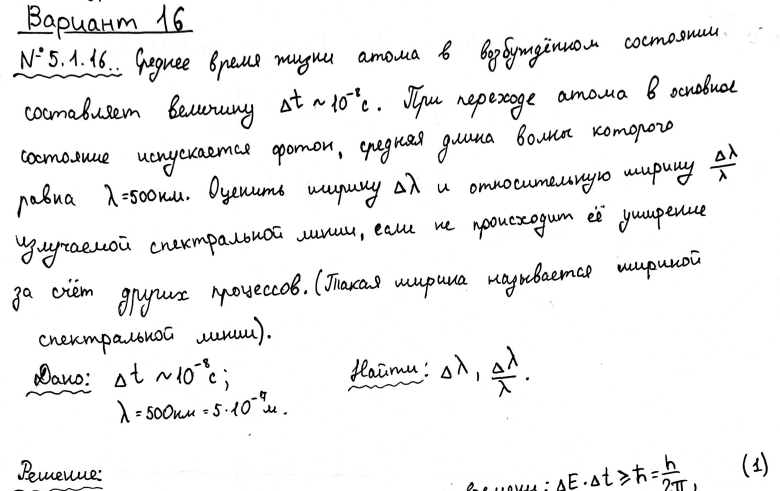 Вариант 16
№5.1.16.. Среднее время жизни атома в возбуждённом состоянии
составляет величину Δt ~ 10⁻⁸ с. При переходе атома в основное
состояние испускается фотон, средняя длина волны которого
равна λ=500нм. Оценить ширину Δλ и относительную ширину Δλ/λ
излучаемой спектральной линии, если не происходит её уширение
за счёт других процессов. (Такая ширина называется шириной
спектральной линии).
Дано: Δt ~ 10⁻⁸ с; Найти: Δλ, Δλ/λ.
λ = 500нм = 5·10⁻⁷ м.
Решение:
ΔE·Δt ≥ ħ = h/2π, (1)